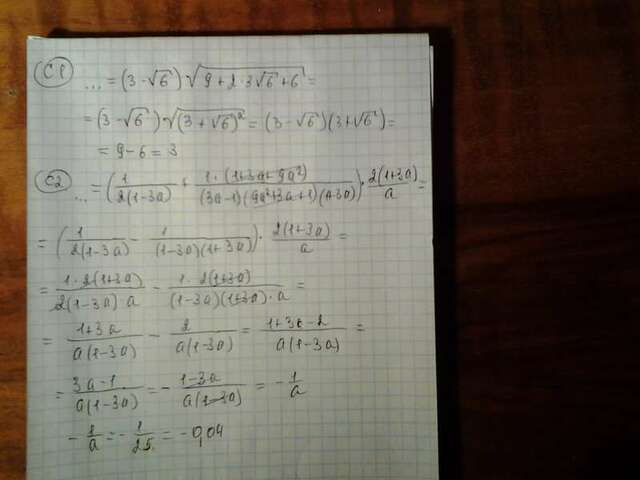 C1 ... = (3 - √6) · √(9 + 2 · 3√6 + 6) =
= (3 - √6) · √((3 + √6)²) = (3 - √6)(3 + √6) =
= 9 - 6 = 3
C2 ... = (1/(2(1-3a)) + (1 · (1+3a+9a²))/((3a-1)(9a²+3a+1)(1+3a))) · (2(1+3a))/a =
= (1/(2(1-3a)) - 1/((1-3a)(1+3a))) · (2(1+3a))/a =
= (1 · 2(1+3a))/(2(1-3a) · a) - (1 · 2(1+3a))/((1-3a)(1+3a) · a) =
= (1+3a)/(a(1-3a)) - 2/(a(1-3a)) = (1+3a-2)/(a(1-3a)) =
= (3a-1)/(a(1-3a)) = - (1-3a)/(a(1-3a)) = - 1/a
- 1/a = - 1/25 = - 0,04